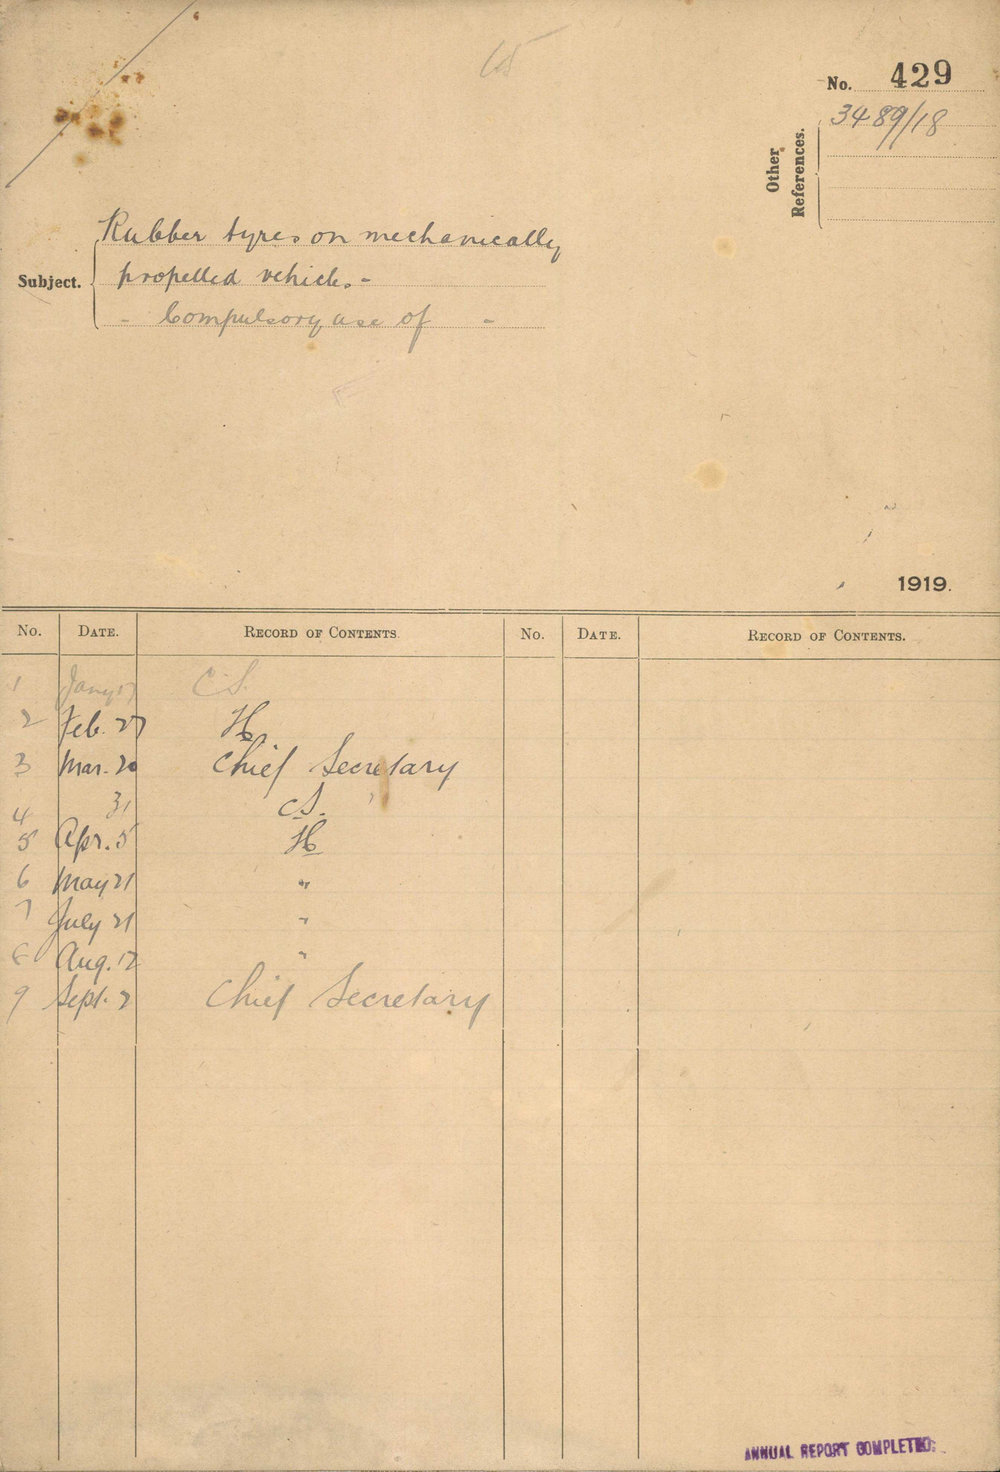 No. 429
Other References.
3489/18
Subject.
Rubber tyres on mechanically
propelled vehicles -
- Compulsory use of -
1919.
No. DATE. RECORD OF CONTENTS. No. DATE. RECORD OF CONTENTS.
1 Jany 17 C.S.
2 Feb. 27 H
3 Mar. 20 Chief Secretary
4 31 C.S.
5 Apr. 5 H
6 May 21 "
7 July 21 "
8 Aug. 12 "
9 Sept. 2 Chief Secretary
ANNUAL REPORT COMPLETED.